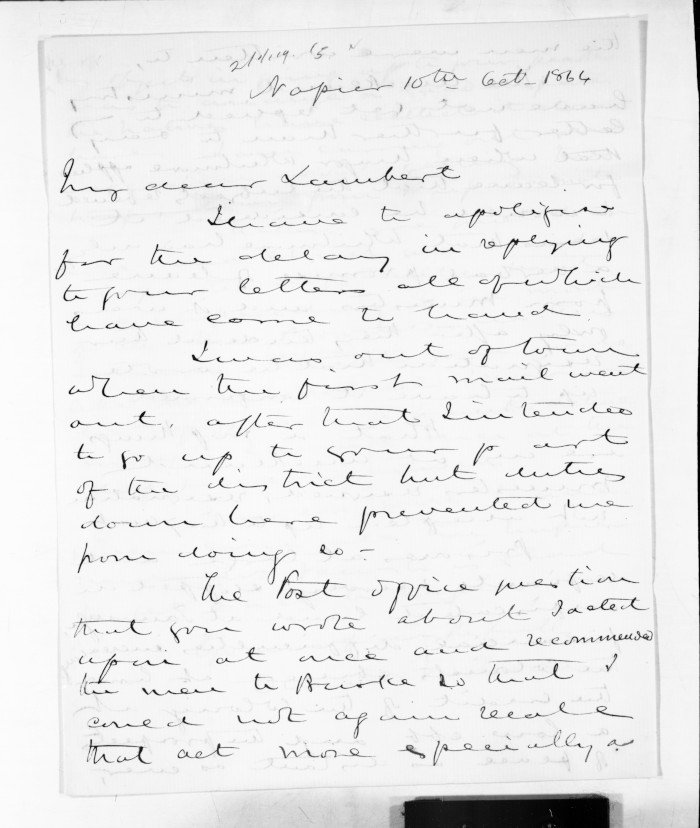 Napier 10th Oct- 1864
My dear Lambert
I have to apologise
for the delay in replying
to your letters all of which
have come to hand
I was out of town
when the first mail went
out, after that I intended
to go up to your part
of the district but duties
down here prevented me
from doing so -
The Post office question
that you wrote about I acted
upon at once and recommended
the man to so that I
could not again recall
that act more especially as